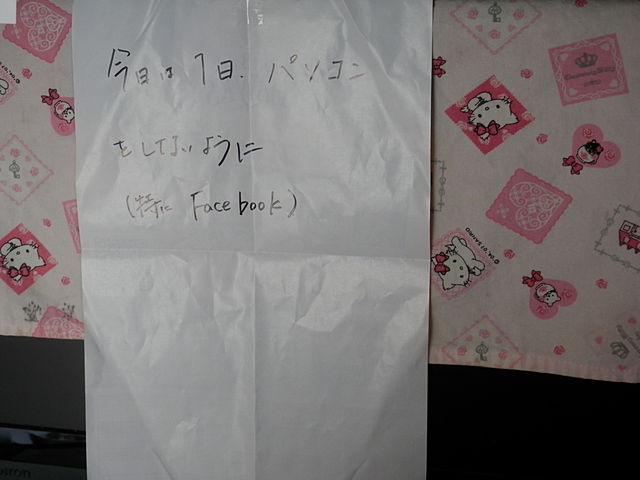 今日は1日、パソコン
をしないように
(特に Facebook)